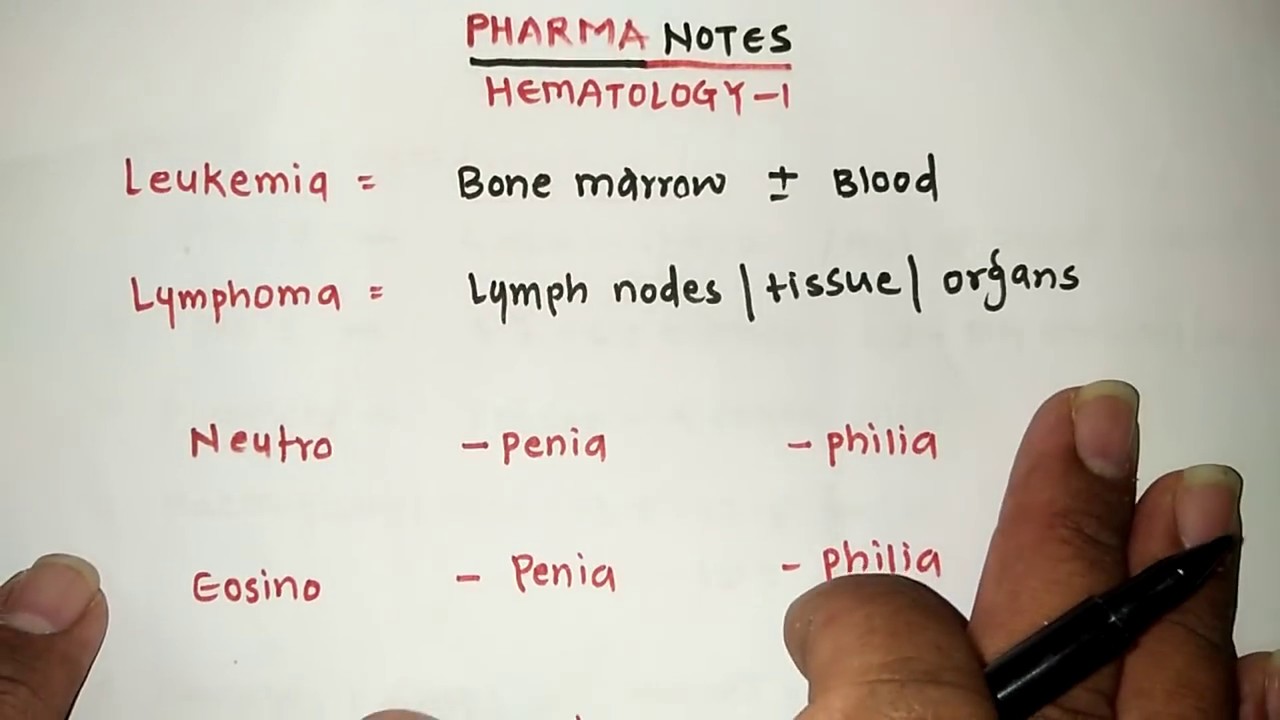 PHARMA NOTES
HEMATOLOGY-1
Leukemia = Bone marrow ± Blood
Lymphoma = Lymph nodes | tissue | organs
Neutro - penia - philia
Eosino - Penia - philia